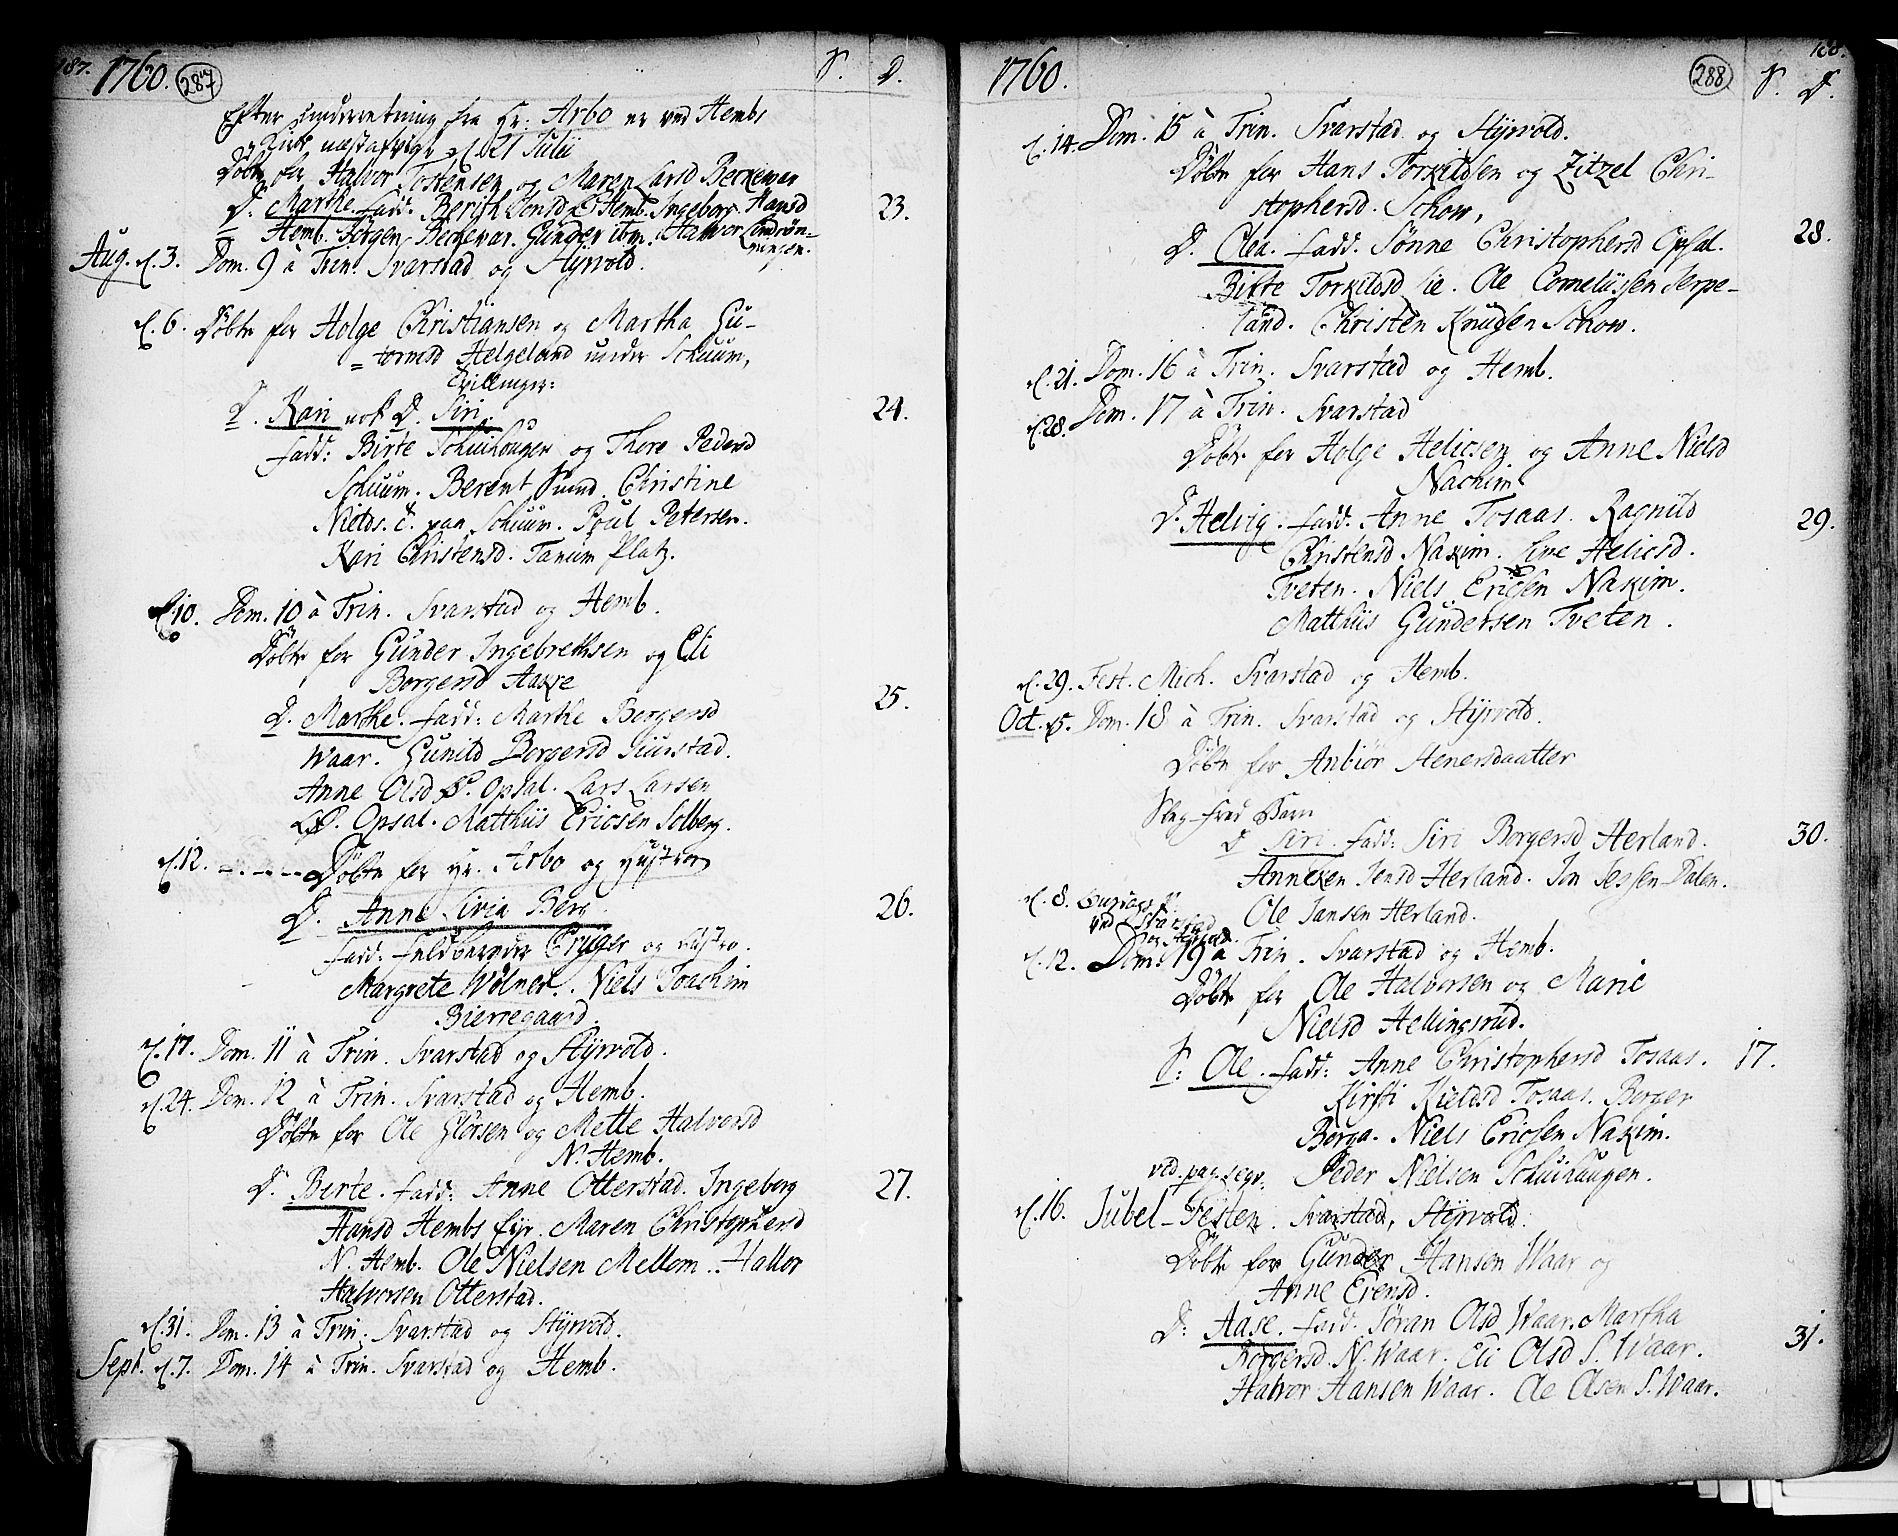 187. 1760. 287 S. D.
Efter underretning fra Hr. Arbo er ved Hembs
Kirke d. 21 Julii
Döbte for Halvor Tostensen og Maren Larsd Beckevar
D. Marthe. fadd. Berith Hemb. Ingeborg Hansd 23.
Hemb. Jørgen Beckevar. Gunder ibm. Halvor
Aug. d. 3. Dom. 9 à Trin. Svarstad og Styrvold.
d. 6. Döbte for Holge Christiansen og Martha Gu-
= tormsd Helgeland under Schuum,
Tvillinger:
D. Kari nok D. Siri 24.
fadd: Birte Schuihougen og Thore Pedersd
Schuum. Berent Svend. Christine
Nields. d. paa Schuum. Poul Petersen.
Kari Christensd. Tanum Platz.
d. 10. Dom. 10 à Trin. Svarstad og Hemb.
Döbte for Gunder Ingebrethsen og Eli
Borgersd Aakre
D. Marthe. fadd: Marthe Borgersd 25.
Waar. Gunild Borgersd
Anne Olsd Opsal. Lars Larsen
Opsal. Matthiis Ericsen Solberg.
d. 12. Döbte for Hr. Arbo og Hustroe
D. Anne Livia Berg 26.
fadd: Cryger og Hustro.
Margrete Wölner. Niels Joachim
Bierregaard.
d. 17. Dom. 11 à Trin. Svarstad og Styrvold.
d. 24. Dom. 12 à Trin. Svarstad og Hemb.
Döbte for Ole Glörsen og Mette Halvorsd
N. Hemb.
D. Birte. fadd: Anne Otterstad. Ingeborg 27.
Hansd Hembs Eyr. Maren Christophersd
N. Hemb. Ole Nielsen Mellom. Hallvor
Halvorsen Otterstad.
d. 31. Dom. 13 à Trin. Svarstad og Styrvold.
Sept. d. 7. Dom. 14 à Trin. Svarstad og Hemb.
1760. 288 188. S. D.
d. 14. Dom. 15 à Trin. Svarstad og Styrvold.
Döbte for Hans Torkildsen og Zitzel Chri-
stophersd. Schow,
D. Olea. fadd: Sönne Christophersd Opsal. 28.
Birte Torkildsd ie. Ole Corneliisen Serpe-
land. Christen Knudsen Schow.
d. 21. Dom. 16 à Trin. Svarstad og Hemb.
d. 28. Dom. 17 à Trin. Svarstad
Döbte for Holge Helicsen og Anne Nielsd
Nachim
D. Helvig. fadd. Anne Tosaas. Ragnild 29.
Christensd Nakim. Live Helicsd.
Tveten. Niels Ericsen Nakim.
Matthiis Gundersen Tveten.
d. 29. Fest. Mich. Svarstad og Hemb.
Oct. d. 5. Dom. 18 à Trin. Svarstad og Styrvold.
Döbte for Anbiör Stenersdaatter
Slag-fred Barn
D Siri. fadd: Siri Borgersd Herland. 30.
Anneken Jensd Herland. Jon Jessen Dalen.
Ole Jansen Herland.
d. 8.
ved Svarstad
d. 12. Dom. 19 à Trin. Svarstad og Hemb.
Döbte for Ole Halvorsen og Marie
Nielsd Hellingsrud.
S: Ole. fadd: Anne Christophersd Tosaas. 17.
Kirsti Kieldsd Tosaas. Borger
Borga. Niels Ericsen Nakim.
vid. pag. seqv. Peder Nielsen Schuihaugen.
d. 16. Jubel-Festen. Svarstad, Styrvold.
Döbte for Gunder Hansen Waar og
Anne Evensd.
D: Aase. fadd. Jöran Olsd Waar. Martha 31.
Borgersd. N. Waar. Eli Olsd S. Waar.
Halvor Hansen Waar. Ole Olsen S. Waar.